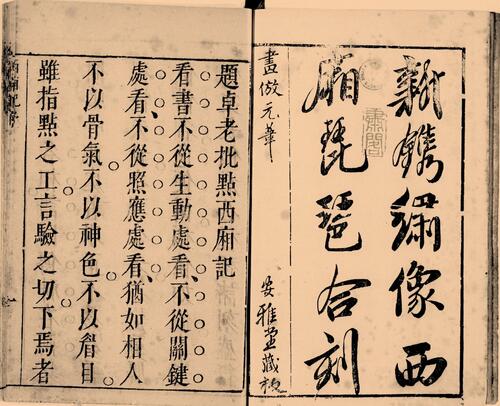 新鐫繡像西
廂琵琶合刻
畫倣元筆
安雅堂藏板
題卓老批點西廂記
看書不從生動處看、不從關鍵
處看、不從照應處看、猶如相人
不以骨氣不以神色不以眉目
雖指點之工言驗之切下焉者